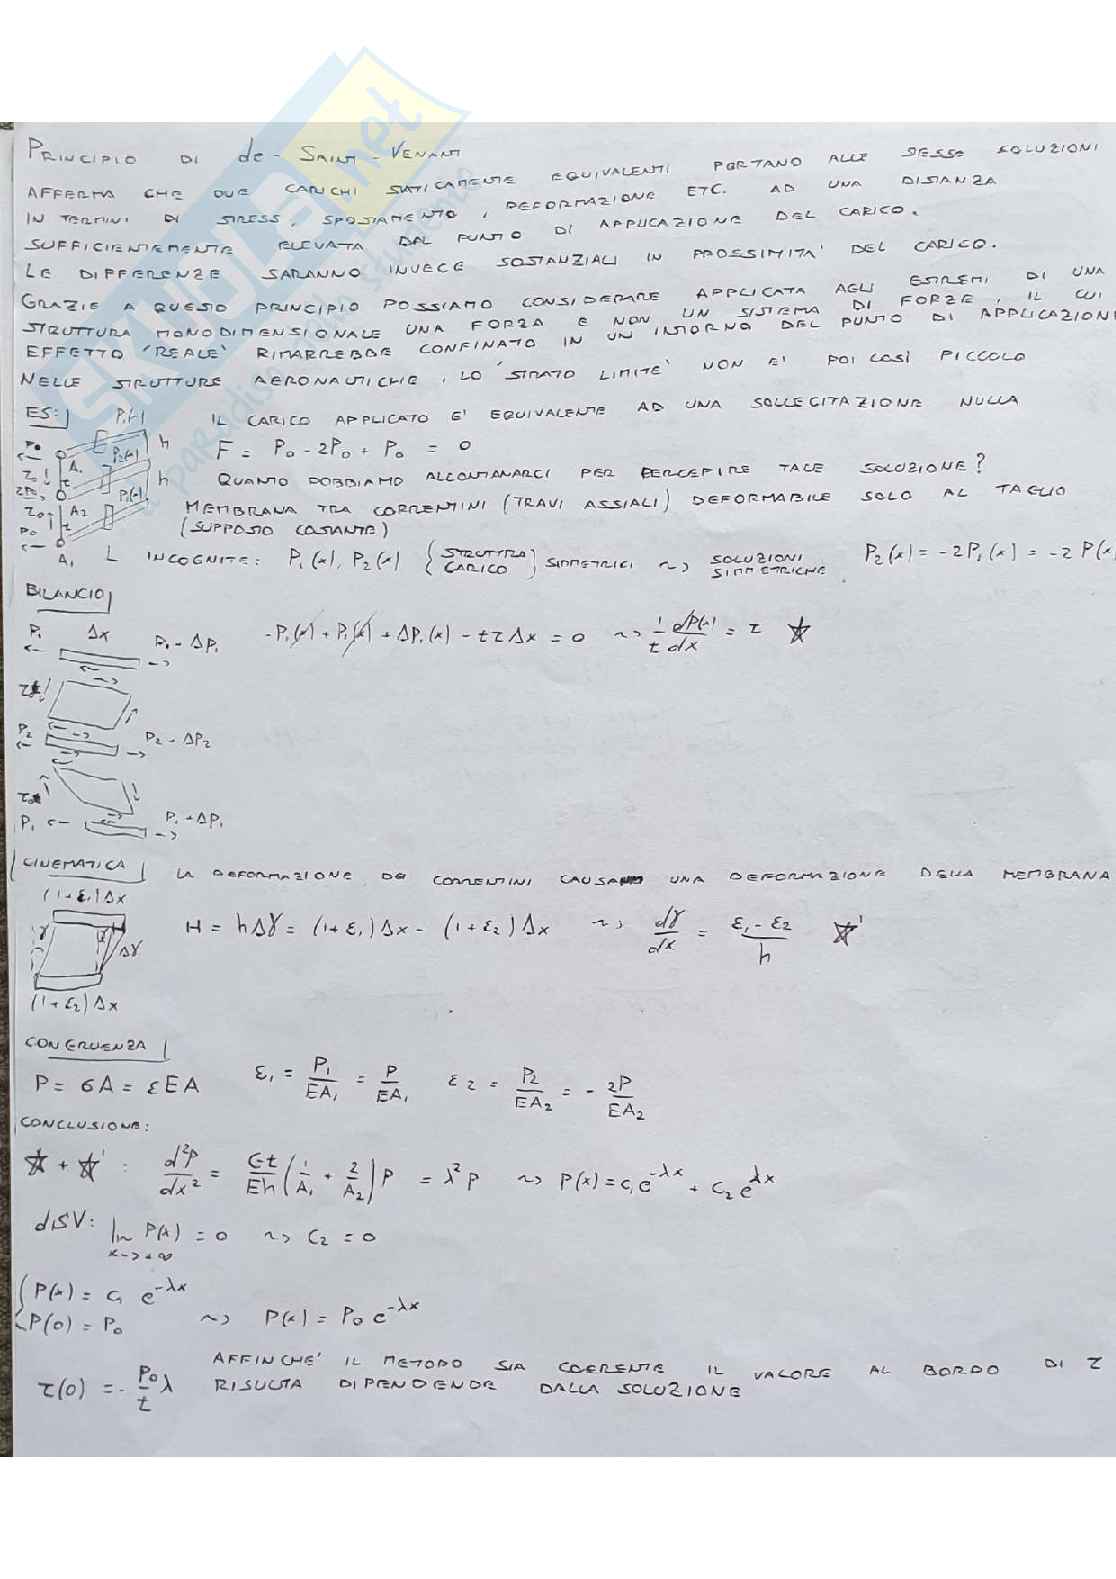 PRINCIPIO DI de-SAINT-VENANT
AFFERMA CHE DUE CARICHI STATICAMENTE EQUIVALENTI PORTANO ALLE STESSE SOLUZIONI
IN TERMINI DI STRESS, SPOSTAMENTO, DEFORMAZIONE ETC. AD UNA DISTANZA
SUFFICIENTEMENTE ELEVATA DAL PUNTO DI APPLICAZIONE DEL CARICO.
LE DIFFERENZE SARANNO INVECE SOSTANZIALI IN PROSSIMITA' DEL CARICO.
GRAZIE A QUESTO PRINCIPIO POSSIAMO CONSIDERARE APPLICATA AGLI ESTREMI DI UNA
STRUTTURA MONODIMENSIONALE UNA FORZA E NON UN SISTEMA DI FORZE, IL CUI
EFFETTO 'REALE' RIMARREBBE CONFINATO IN UN INTORNO DEL PUNTO DI APPLICAZION
NELLE STRUTTURE AERONAUTICHE, LO 'STRATO LIMITE' NON E' POI COSÌ PICCOLO
ES: IL CARICO APPLICATO E' EQUIVALENTE AD UNA SOLLECITAZIONE NULLA
P₁(x) h P₀ A₁ P₂(x) h 2P₀ A₂ P₁(x) P₀ A₁ L
F = P₀ - 2P₀ + P₀ = 0
QUANTO DOBBIAMO ALLONTANARCI PER PERCEPIRE TALE SOLUZIONE?
MEMBRANA TRA CORRENTINI (TRAVI ASSIALI) DEFORMABILE SOLO AL TAGLIO
(SUPPOSTO COSTANTE)
INCOGNITE: P₁(x), P₂(x) { STRUTTURA CARICO } SIMMETRICI ~> SOLUZIONI SIMMETRICHE P₂(x) = -2P₁(x) = -2 P(x
BILANCIO
P₁ Δx P₁ - ΔP₁
-P₁(x) + P₁(x) + ΔP₁(x) - tτΔx = 0 ~> 1/t dP(x)/dx = τ ☆
P₂ P₂ - ΔP₂
P₁ P₁ + ΔP₁
CINEMATICA LA DEFORMAZIONE DEI CORRENTINI CAUSA UNA DEFORMAZIONE DELLA MEMBRANA
(1+ε₁)Δx
γ H γ Δγ
H = hΔγ = (1+ε₁)Δx - (1+ε₂)Δx ~> dγ/dx = (ε₁ - ε₂)/h ☆'
(1+ε₂)Δx
CONGRUENZA
P = σA = εEA ε₁ = P₁/EA₁ = P/EA₁ ε₂ = P₂/EA₂ = - 2P/EA₂
CONCLUSIONE:
☆ + ☆' : d²P/dx² = Gt/Eh (1/A₁ + 2/A₂) P = λ²P ~> P(x) = c₁e^-λx + c₂e^λx
diSV: lim x->+∞ P(x) = 0 ~> C₂ = 0
P(x) = c₁ e^-λx
P(0) = P₀ ~> P(x) = P₀ e^-λx
τ(0) = - P₀/t λ AFFINCHE' IL METODO SIA COERENTE IL VALORE AL BORDO DI τ
RISULTA DIPENDENDE DALLA SOLUZIONE
SKUOLA.net